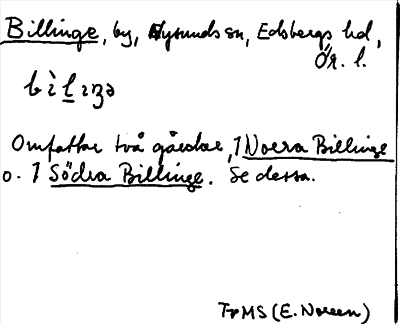 Billinge, by, Nysunds sn, Edsbergs hd,
Ör. l.
Omfattar två gårdar, 1 Norra Billinge
o. 1 Södra Billinge. Se dessa.
TrMS (E. Noreen)